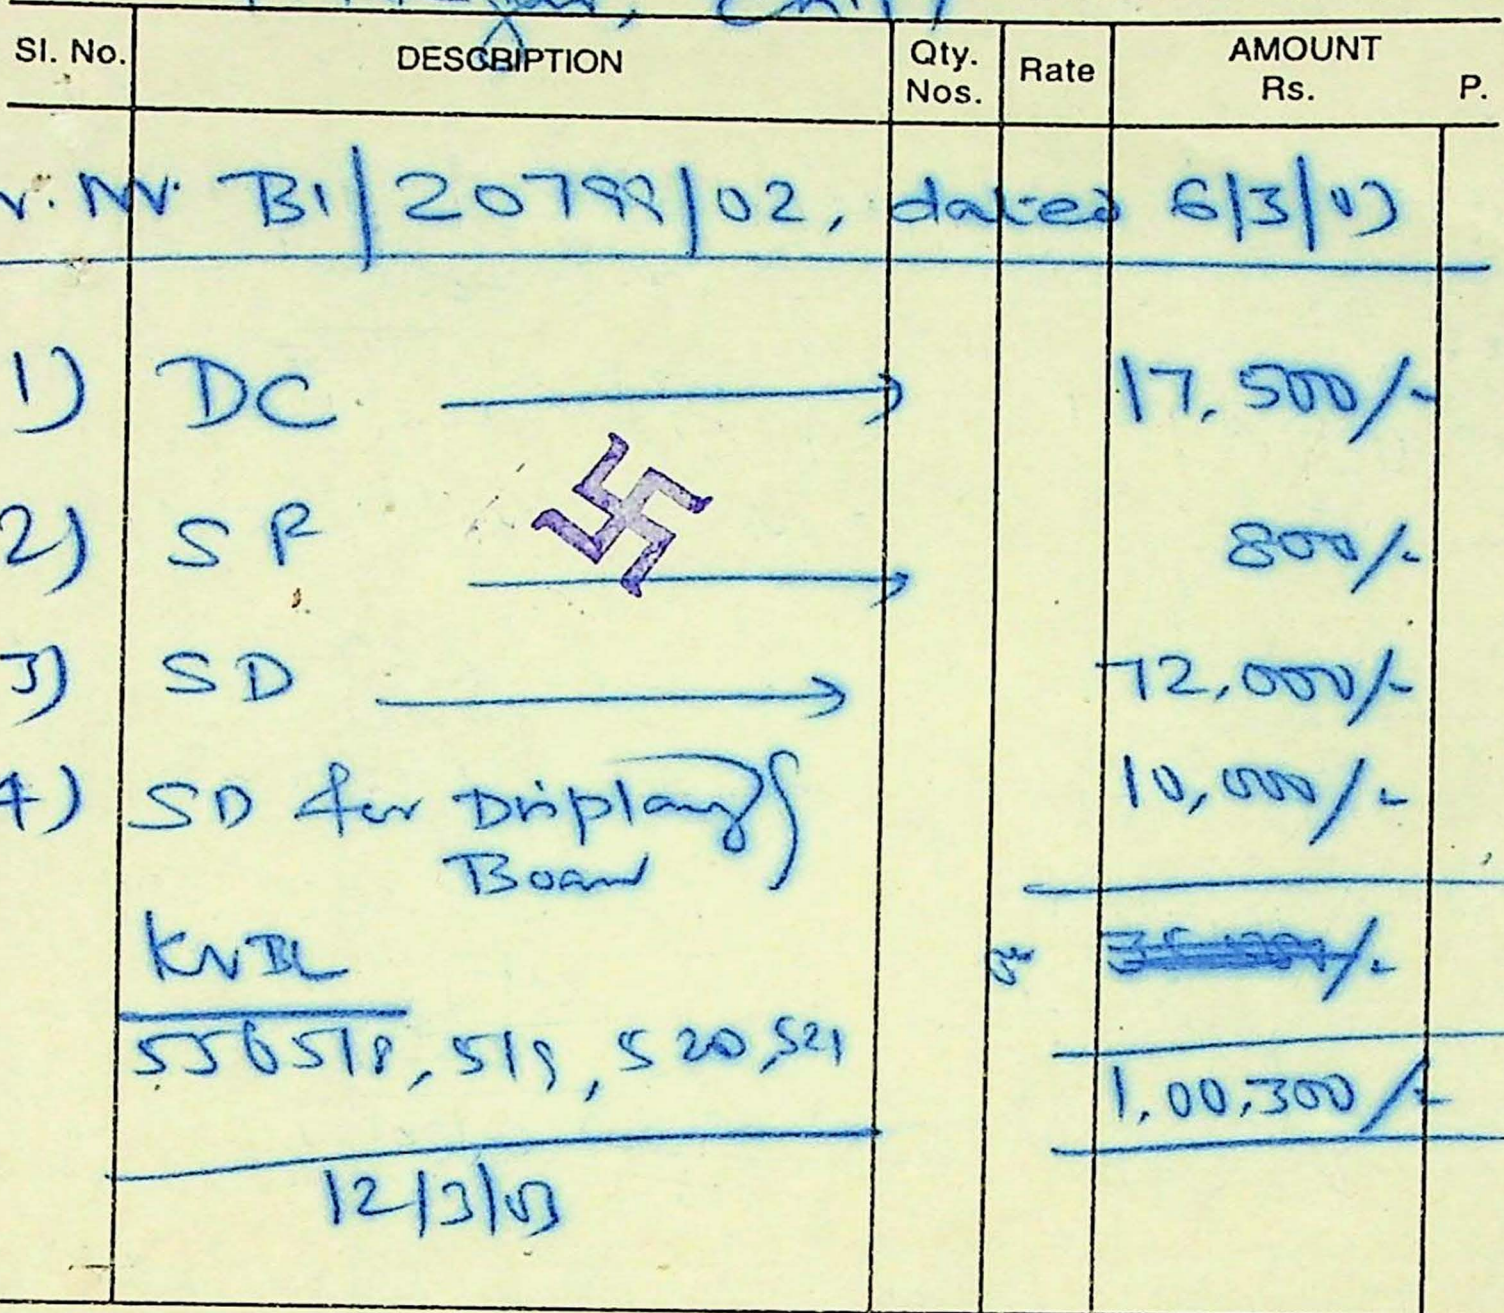 Sl. No. DESCRIPTION Qty. Nos. Rate AMOUNT Rs. P.
B1/20799/02, dated 6/3/03
1) DC 17,500/-
2) SF 800/-
3) SD 72,000/-
4) SD for Display 10,000/-
Board
KVBL
556518, 519, 520, 521
1,00,300/-
12/3/03